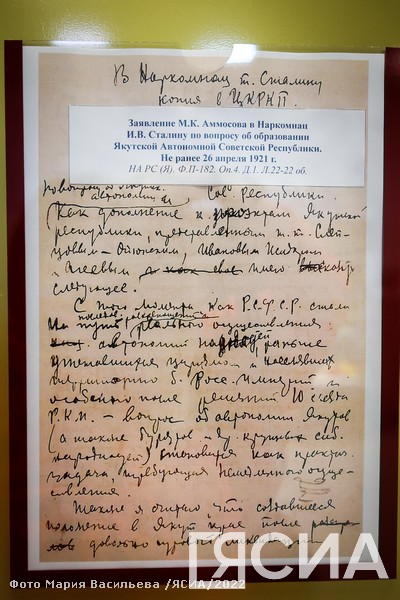 В Наркомнац т. Сталину
копия в ЦКРКП.
Заявление М.К. Аммосова в Наркомнац
И.В. Сталину по вопросу об образовании
Якутской Автономной Советской Республики.
Не ранее 26 апреля 1921 г.
НА РС (Я). Ф.П-182. Оп.4. Д.1. Л.22-22 об.
Сов. республики.
Как дополнение к Якутской
республики, представленным т.т. Слеп-
цовым-Ойюнским, Ивановым
Агеевым имею
следующее.
С того момента как Р.С.Ф.С.Р. стала
На путь реального осуществления
автономий раньше
угнетавшихся царизмом и населявших
территорию б. Росс. Империи и
особенно после решений 10 съезда
Р.К.П. - вопрос об автономии Якутов
(а также Бурятов и др. крупных сиб.
народностей) становится как практ.
задача, требующая немедленного осуще-
ствления.
Также я считаю, что создавшееся
положение в Якут крае после
довольно
ЯСИА
Фото Мария Васильева /ЯСИА/2022